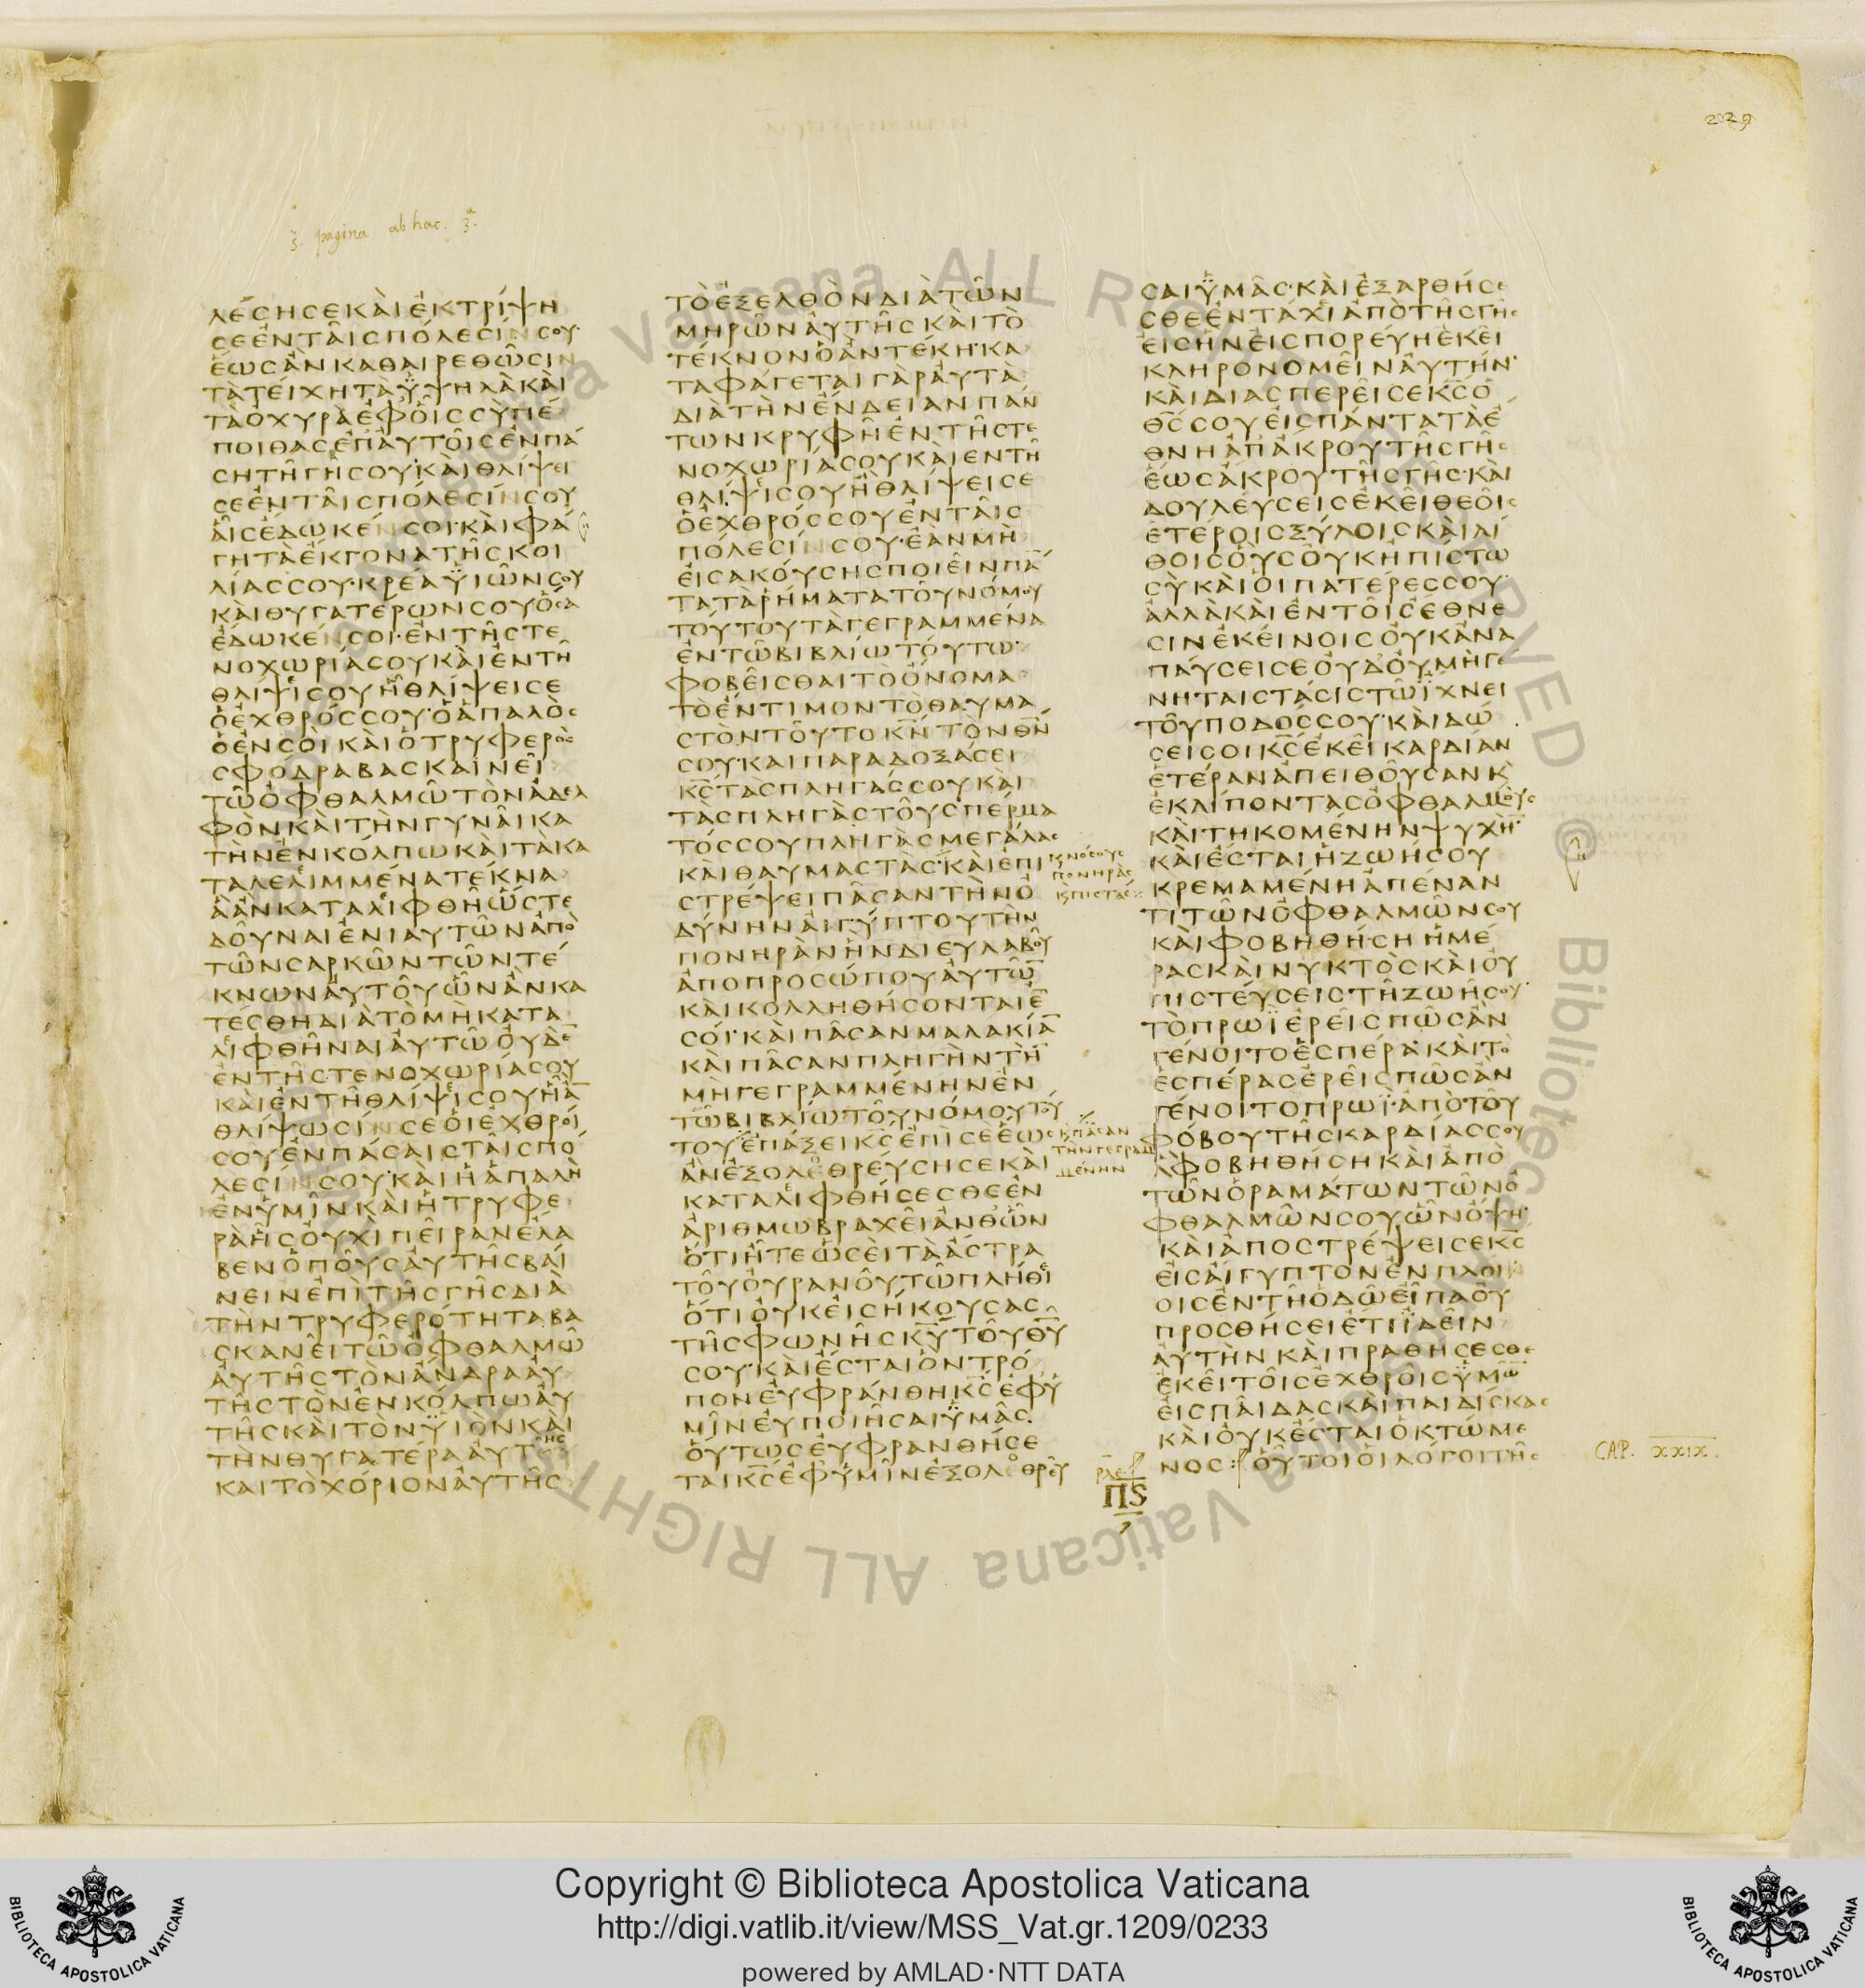 2029
ξ. pagina ab hac. 3ª.
λέσησεκαὶἐκτρίψη
σεἐνταῖσπόλεσίνσου·
ἕωσἂνκαθαιρεθῶσιν
τὰτείχητὰὑψηλὰκαὶ
τὰὀχυρὰἐφ᾽οἷσσὺπέ
ποιθασἐπ᾽αὐτοῖσἐνπά
σητῆγῆσου·καὶθλίψει
σεἐνταῖσπόλεσίνσου
αἷσἔδωκένσοι·καὶφά
γητὰἔκγονατῆσκοι
λίασσου·κρέαὑϊῶνσου
καὶθυγατέρωνσουὅσα
ἔδωκένσοι·ἐντῆστε
νοχωρίασουκαὶἐντῆ
θλίψεισουᾗθλίψεισε
ὁἐχθρόσσου·ὁἁπαλὸσ
ὁἐνσοὶκαὶὁτρυφερὸσ
σφόδραβασκαίνεῖ
τῶὀφθαλμῶτὸνἀδελ
φὸνκαὶτὴνγυναῖκα
τὴνἐνκόλπωκαὶτὰκα
ταλελειμμένατέκνα
ἃἂνκαταλειφθῆὥστε
δοῦναιἑνὶαυτῶνἀπὸ
τῶνσαρκῶντῶντέ
κνωναὐτοῦὧνἂνκα
τέσθηδιὰτὸμὴκατα
λειφθῆναιαὐτῶοὐδὲ
ἐντῆστενοχωρίασου
καὶἐντῆθλίψεισουᾗἂ
θλίψωσίνσεοἱἐχθροί
σουἐνπάσαισταῖσπό
λεσίνσου·καὶἡἁπαλὴ
ἐνὑμῖνκαὶἡτρυφε
ρὰἧσοὐχὶπεῖρανἔλα
βενὁποὺσαὐτῆσβαί
νεινἐπὶτῆσγῆσδιὰ
τὴντρυφερότηταβα
σκανεῖτῶὀφθαλμῶ
αὐτῆστὸνἄνδρααὐ
τῆστὸνἐνκόλπωαὐ
τῆσκαὶτὸνὑϊὸνκαὶ
τὴνθυγατέρααὐτῆσ
καιτὸχόριοναὐτῆσ
τὸἐξελθὸνδιὰτῶν
μηρῶναὐτῆσκαὶτὸ
τέκνονὃἂντέκη·κα
ταφάγεταιγὰραὐτὰ
διὰτὴνἔνδειανπάν
τωνκρυφῆἐντῆστε
νοχωρίασουκαὶἐντῆ
θλίψεισουᾗθλίψεισε
ὁἐχθρόσσουἐνταῖσ
πόλεσίνσου·ἐὰνμὴ
εἰσακούσησποιεῖνπά̅
τατὰῥήματατοῦνόμου
τούτουτὰγεγραμμένα
ἐντῶβιβλίωτούτω·
φοβεῖσθαιτὸὄνομα
τὸἔντιμοντὸθαυμα
στὸντοῦτοκ̅ν̅τὸνθ̅ν̅
σου·καιπαραδοξάσει
κ̅σ̅τὰσπληγάσσουκαὶ
τὰσπληγὰστοῦσπέρμα
τόσσουπληγὰσμεγάλασ
καὶθαυμαστὰσ·καὶἐπι
στρέψειπᾶσαντὴνὀ
δύνηναἰγύπτουτὴν
πονηρὰνἣνδιευλαβοῦ
ἀποπροσώπουαὐτῶ̅
καὶκολληθήσονταιἐ̅
σοί·καὶπᾶσανμαλακία̅
καὶπᾶσανπληγὴντὴ̅
μὴγεγραμμένηνἐν
τῶβιβλίωτοῦνόμουτού
τουἐπάξεικ̅σ̅ἐπὶσεἕωσ
ἂνἐξολεθρεύσησεκαὶ
καταλειφθήσεσθεἐν
ἀριθμωβραχεῖἀνθὧν
ὅτιἦτεὡσεὶτὰἄστρα
τοῦοὐρανοῦτῶπλήθει
ὅτιοὐκεἰσήκουσασ
τῆσφωνῆσκ̅υ̅τοῦθ̅υ̅
σου·καὶἔσταιὃντρό
πονεὐφράνθηκ̅σ̅ἐφ᾽ὑ
μῖνεὐποιῆσαιὑμᾶσ·
οὕτωσεὐφρανθήσε
ταικ̅σ̅ἐφ᾽ὑμῖνἐξολεθρεῦ
ϗνόσουσ
πονηρὰσ
ϗπιστὰσ
ϗπᾶσαν
τὴνγεγραμ
μένην
σαιὑμᾶσ·καὶἐξαρθήσε
σθεἐντάχειἀπὸτῆσγῆσ
εἰσἣνεἰσπορεύηἐκεῖ
κληρονομεῖναὐτήν·
καὶδιασπερεῖσεκ̅σ̅ὁ
θ̅σ̅σουεἰσπάντατὰἔ
θνηἀπ᾽ἄκρουτῆσγῆσ
ἕωσἄκρουτῆσγῆσ·καὶ
δουλεύσεισἐκεῖθεοῖσ
ἑτέροισξύλοισκαὶλί
θοισοὓσοὐκἠπίστω
σὺκαὶοἱπατέρεσσου·
ἀλλὰκαὶἐντοῖσἔθνε
σινἐκείνοισοὐκἀνα
παύσεισεοὐδ᾽οὐμὴγέ
νηταιστάσιστῶἴχνει
τοῦποδόσσου·καὶδώ
σεισοικ̅σ̅ἐκεῖκαρδίαν
ἑτέρανἀπειθοῦσανκ̀
ἐκλίποντασὀφθαλμοὺσ
καὶτηκομένηνψυχὴν·
καὶἔσταιἡζωήσου
κρεμαμένηἀπέναν
τιτῶνὀφθαλμῶνσου
καὶφοβηθήσηἡμέ
ρασκαὶνυκτὸσκαὶοὐ
πιστεύσειστῆζωῆσου·
τὸπρωῒἐρεῖσπῶσἂν
γένοιτοἑσπέρα·καὶτὸ
ἑσπέρασἐρεῖσπῶσἂν
γένοιτοπρωΐ·ἀπὸτοῦ
φόβουτῆσκαρδίασσου
ἃφοβηθήσηκαὶἀπὸ
τῶνὁραμάτωντῶνὀ
φθαλμῶνσουὧνὄψη·
καὶἀποστρέψεισεκ̅σ̅
εἰσαἴγυπτονἐνπλοί
οισἐντῆὁδῶᾗεἶπαοὐ
προσθήσειἔτιἰδεῖν
αὐτὴνκαὶπραθήσεσθε
ἐκεῖτοῖσἐχθροῖσὑμῶ̅
εἰσπαῖδασκαὶπαιδίσκασ
καὶοὐκἔσταιὁκτώμε
νοσ:οὗτοιοἱλόγοιτῆσ
CAP. XXIX.
ΠS
Copyright © Biblioteca Apostolica Vaticana
http://digi.vatlib.it/view/MSS_Vat.gr.1209/0233
powered by AMLAD·NTT DATA
BIBLIOTECA APOSTOLICA VATICANA
BIBLIOTECA APOSTOLICA VATICANA